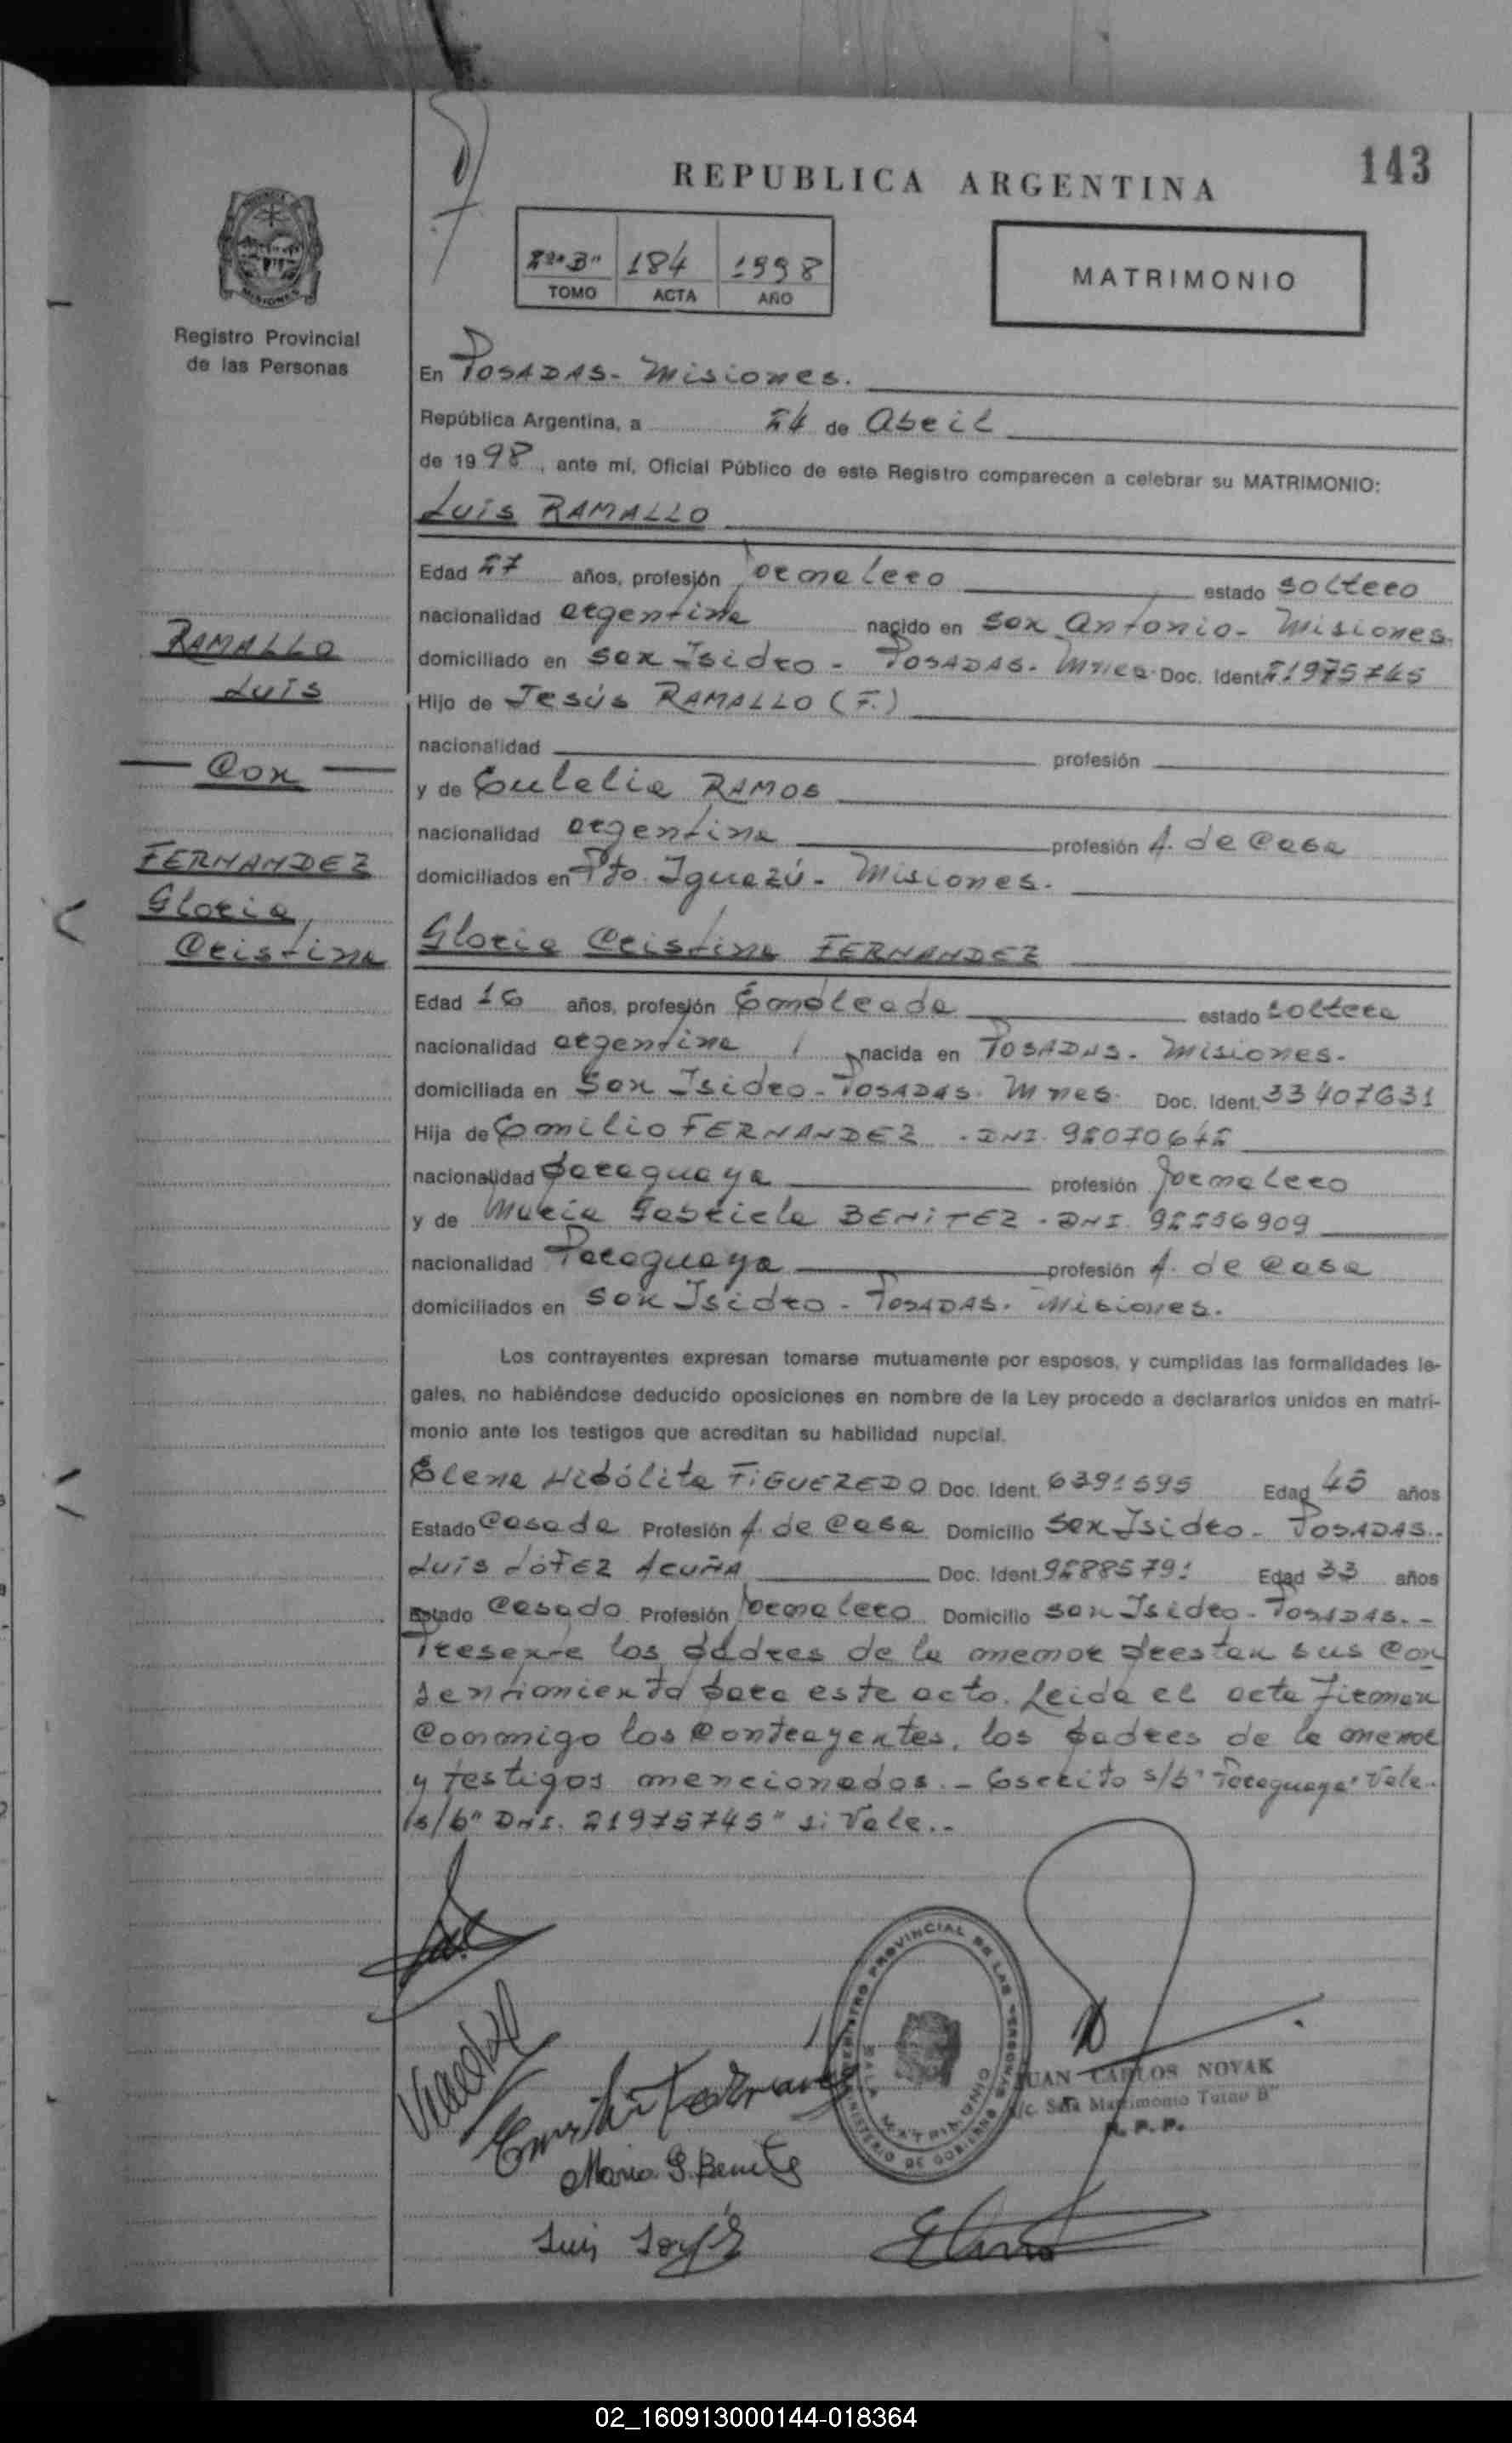 143
REPUBLICA ARGENTINA
2º"B" 184 1998
TOMO ACTA AÑO
MATRIMONIO
MISIONES
Registro Provincial
de las Personas
En POSADAS- Misiones.
República Argentina, a 24 de Abril
de 1998, ante mí, Oficial Público de este Registro comparecen a celebrar su MATRIMONIO:
Luis RAMALLO
Edad 27 años, profesión Jornalero estado soltero
nacionalidad argentina nacido en San Antonio- Misiones.
domiciliado en San Isidro - POSADAS- Mnes. Doc. Ident. 21975745
Hijo de Jesús RAMALLO (F.)
nacionalidad profesión
y de Eulalia RAMOS
nacionalidad argentina profesión A. de Casa
domiciliados en Pto. Iguazú- Misiones.
RAMALLO
Luis
Con
FERNANDEZ
Gloria
Cristina
Gloria Cristina FERNANDEZ
Edad 16 años, profesión Empleada estado soltera
nacionalidad argentina nacida en POSADAS- Misiones.
domiciliada en San Isidro- POSADAS- Mnes. Doc. Ident. 33407631
Hija de Emilio FERNANDEZ - DNI.
nacionalidad paraguaya profesión Jornalero
y de María Gabriela BENITEZ - DNI. 92256909
nacionalidad Paraguaya profesión A. de Casa
domiciliados en San Isidro - POSADAS- Misiones.
Los contrayentes expresan tomarse mutuamente por esposos, y cumplidas las formalidades le-
gales, no habiéndose deducido oposiciones en nombre de la Ley procedo a declararlos unidos en matri-
monio ante los testigos que acreditan su habilidad nupcial.
Elena Hipólita FIGUEREDO Doc. Ident. 6391595 Edad 45 años
Estado Casada Profesión A. de Casa Domicilio San Isidro- POSADAS.
Luis LÓPEZ ACUÑA Doc. Ident. 92885791 Edad 33 años
Estado Casado Profesión Jornalero Domicilio San Isidro- POSADAS.-
Presente los padres de la menor prestan sus con
sentimiento para este acto. Leida el acta firman
conmigo los contrayentes, los padres de la menor
y testigos mencionados.- Escrito s/b "Paraguaya" Vale.
s/b "DNI. 21975745" si Vale.-
REGISTRO PROVINCIAL DE LAS PERSONAS
MINISTERIO DE GOBIERNO
SALA MATRIMONIO
JUAN CARLOS NOVAK
a/c. Sala Matrimonio Turno B"
R.P.P.
Emilio Fernandez
Maria G. Benitez
Luis Lopez
02_160913000144-018364